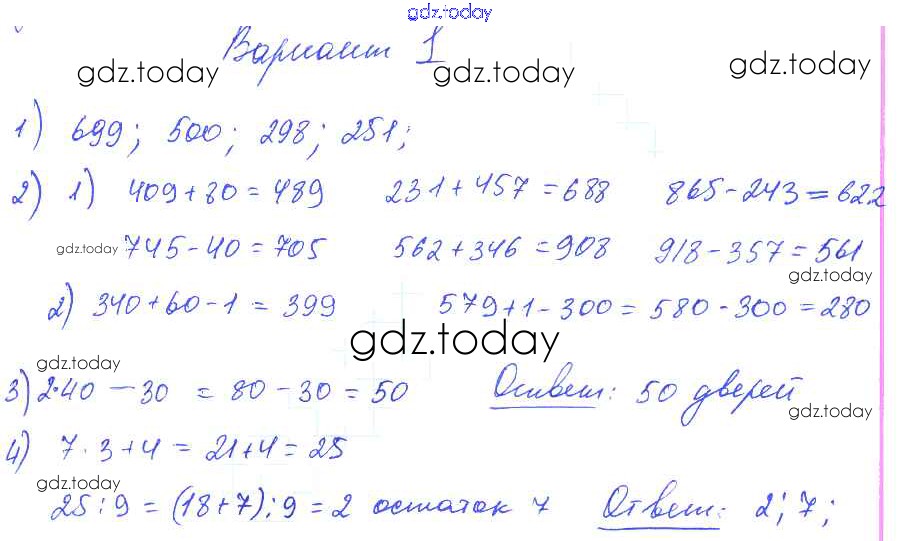 gdz.today
Вариант 1
gdz.today gdz.today gdz.today
1) 699; 500; 298; 251;
2) 1) 409+80=489 231+457=688 865-243=622
gdz.today 745-40=705 562+346=908 918-357=561
gdz.today
2) 340+60-1=399 579+1-300=580-300=280
gdz.today
gdz.today
3) 2·40-30=80-30=50 Ответ: 50 дверей
gdz.today
4) 7·3+4=21+4=25
gdz.today
25:9=(18+7):9=2 остаток 7 Ответ: 2; 7;